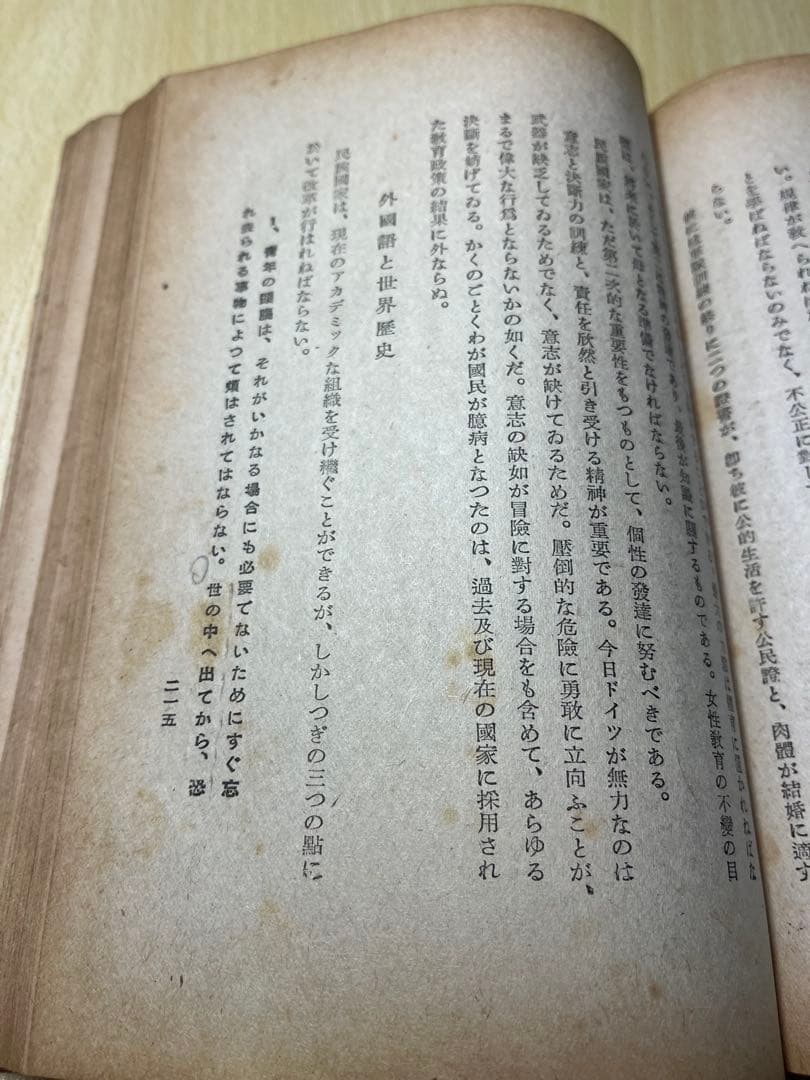 い。規律が教へられね
とを学ばねばならないのみでなく、不公正に對し
らない。
二つの證書が、卽ち彼に公的生活を許す公民證と、肉體が結婚に適す
知識に關するものである。女性敎育の不變の目
に於いて母となる準備でなければならない。
民族國家は、ただ第二次的な重要性をもつものとして、個性の發達に努むべきである。
意志と決斷力の訓練と、責任を欣然と引き受ける精神が重要である。今日ドイツが無力なのは
武器が缺乏してゐるためでなく、意志が缺けてゐるためだ。壓倒的な危險に勇敢に立向ふことが、
まるで偉大な行爲とならないかの如くだ。意志の缺如が冒險に對する場合をも含めて、あらゆる
決斷を妨げてゐる。かくのごとくわが國民が臆病となつたのは、過去及び現在の國家に採用され
た敎育政策の結果に外ならぬ。
外國語と世界歷史
民族國家は、現在のアカデミックな組織を受け繼ぐことができるが、しかしつぎの三つの點に
於いて改革が行はれねばならない。
1、靑年の頭腦は、それがいかなる場合にも必要でないためにすぐ忘
れ去られる事物によつて煩はされてはならない。世の中へ出てから、恐
二一五